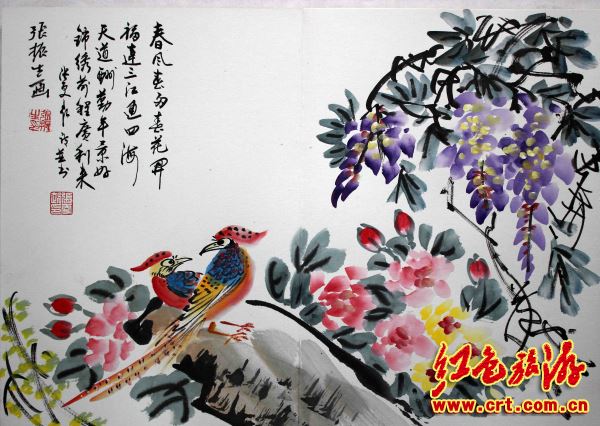 春风春雨春花開
福達三江通四海
天道酬勤年景好
錦绣前程廣利来
張振生画
红色旅游
www.crt.com.cn